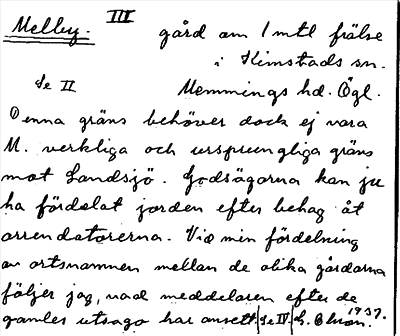 Melby. III gård om 1 mtl frälse
i Kimstads sn.
Se II Memmings hd. Ögl.
Denna gräns behöver dock ej vara
M. verkliga och ursprungliga gräns
mot Landsjö. Godsägarna kan ju
ha fördelat jorden efter behag åt
arrendatorerna. Vid min fördelning
av ortsnamnen mellan de olika gårdarna
följer jag, vad meddelaren efter de
gamles utsago har ansett. |Se IV| 1937.